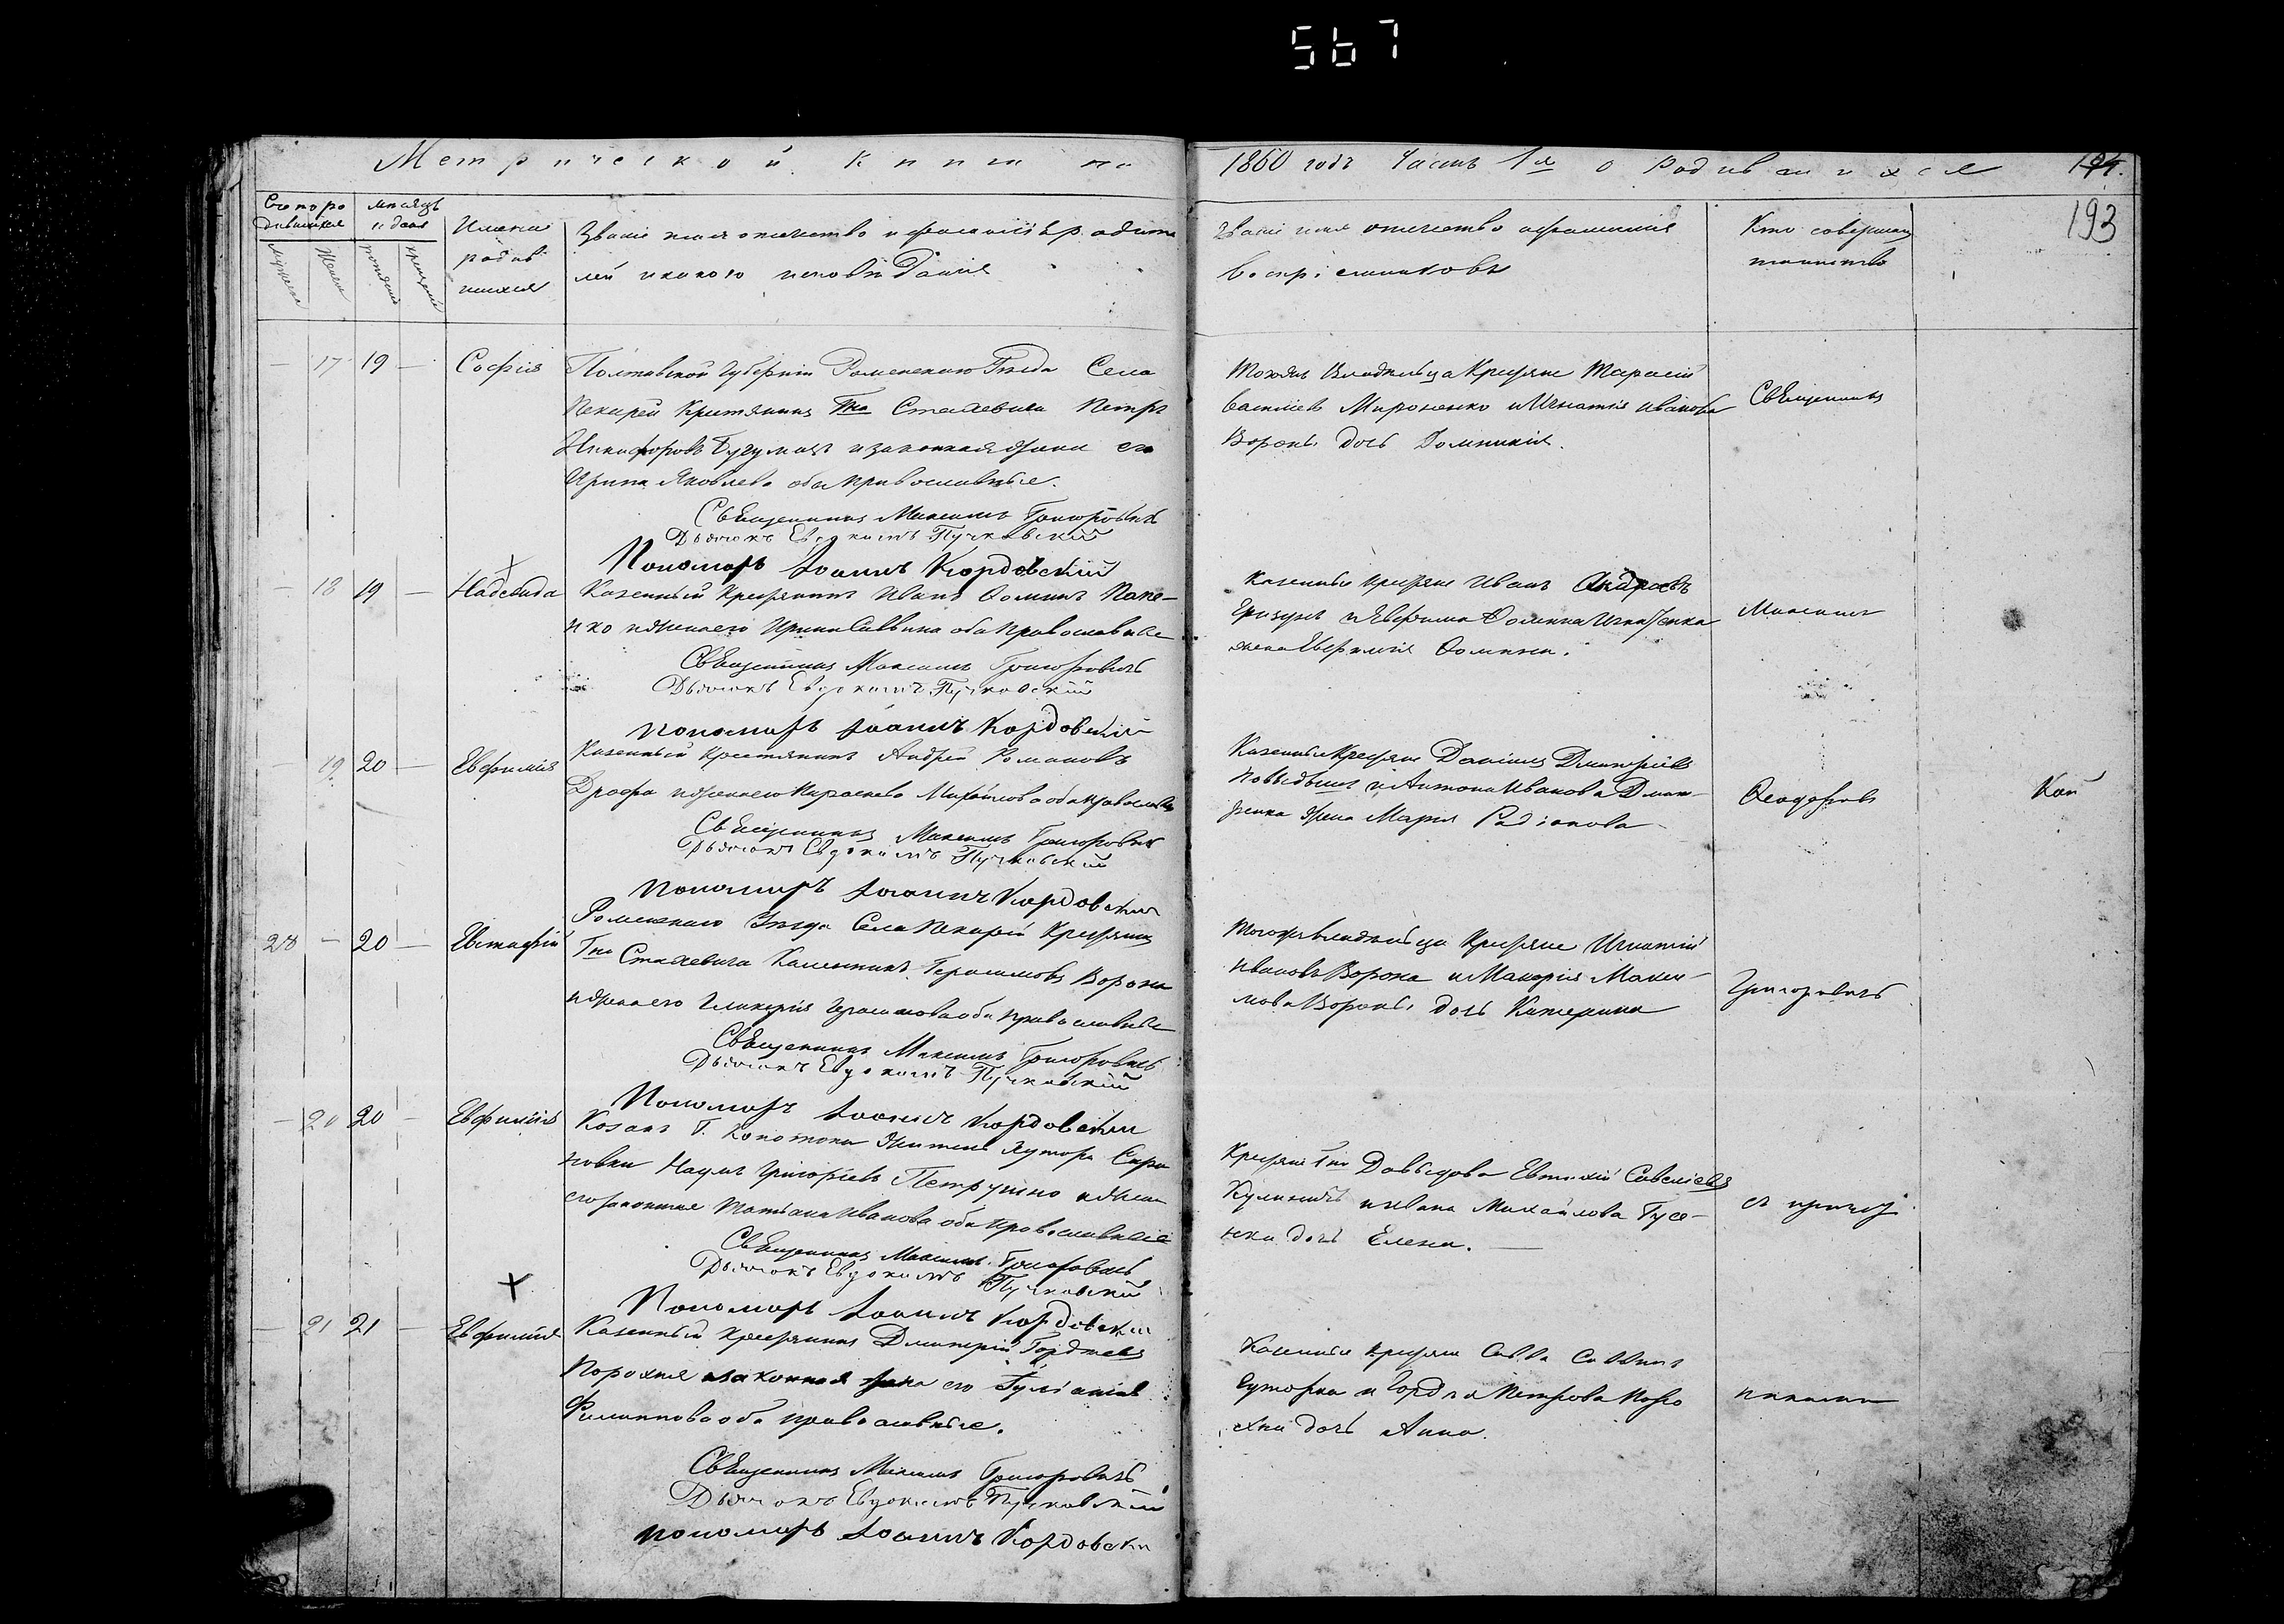 567
Метрической книги на
1860 годъ Часть 1я о Родившихся
193
Имена
родив
шихся
Званіе имя отчество и фамилія родите
лей и какого исповѣданія
Званіе имя отчество и фамилія
воспріемниковъ
Кто совершалъ
таинство
17 19 Софія
Полтавской Губерніи Роменскаго Уѣзда Села
Пекарей Крестянинъ Гна Стахевича Петръ
Никифоровъ и законная жена его
Ирина Яковлева оба православные.
Священникъ Максимъ Григоровичъ
Дьячокъ Евдокимъ Пучковскій
Пономарь Іоаннъ Кордовскій
Тогожъ Владѣльца Крестяне Тарасій
Васильевъ Мироненко и Игнатія Иванова
Вороны дочь Домникія.
Священникъ
18 19 Надежда
Казенный Крестянинъ Иванъ Ѳоминъ Папе-
нко и жена его Ирина Саввина оба православные
Священникъ Максимъ Григоровичъ
Дьячокъ Евдокимъ Пучковскій
Пономарь Іоаннъ Кордовскій
Казенные Крестяне Иванъ Андреевъ
жена Евфимія Ѳомина.
Максимъ
19 20 Евфимія
Казенный Крестянинъ Андрей Романовъ
Драфа и жена его Параскева Михайлова оба православные
Священникъ Максимъ Григоровичъ
Дьячокъ Евдокимъ Пучковскій
Пономарь Іоаннъ Кордовскій
Казенные Крестяне Даніилъ Дмитріевъ
и Антона Иванова Дмит-
ренка жена Марія Радіонова
Ѳеодоровъ
28 20 Евстафій
Роменскаго Уѣзда Села Пекарей Крестянинъ
Гна Стахевича Калинникъ Герасимовъ Ворона
и жена его Гликерія Герасимова оба православные
Священникъ Максимъ Григоровичъ
Дьячокъ Евдокимъ Пучковскій
Пономарь Іоаннъ Кордовскій
Тогожъ владѣльца Крестяне Игнатій
Ивановъ Ворона и Макарія Макси-
мова Вороны дочь Катерина
Григоровичъ
20 20 Евфимія
Козакъ Г. Конотопа Житель Хутора Сара
новки Наумъ Григорьевъ Петрушко и жена
его законная Татіана Иванова оба православные
Священникъ Максимъ Григоровичъ
Дьячокъ Евдокимъ Пучковскій
Пономарь Іоаннъ Кордовскій
Крестяне Гна Давыдова Евтихій Савеліевъ
Кулиничъ и Ивана Михайлова Гусе-
нка дочь Елена.
съ причет
21 21 Евфимія
Казенный Крестянинъ Дмитрій Гордѣевъ
Порохня и законная жена его Гуліанія
Филиппова оба православные.
Священникъ Максимъ Григоровичъ
Дьячокъ Евдокимъ Пучковскій
Пономарь Іоаннъ Кордовскій
Казенные Крестяне Савва Саввинъ
и Гордѣя Петрова Поро
хни дочь Анна.
никами